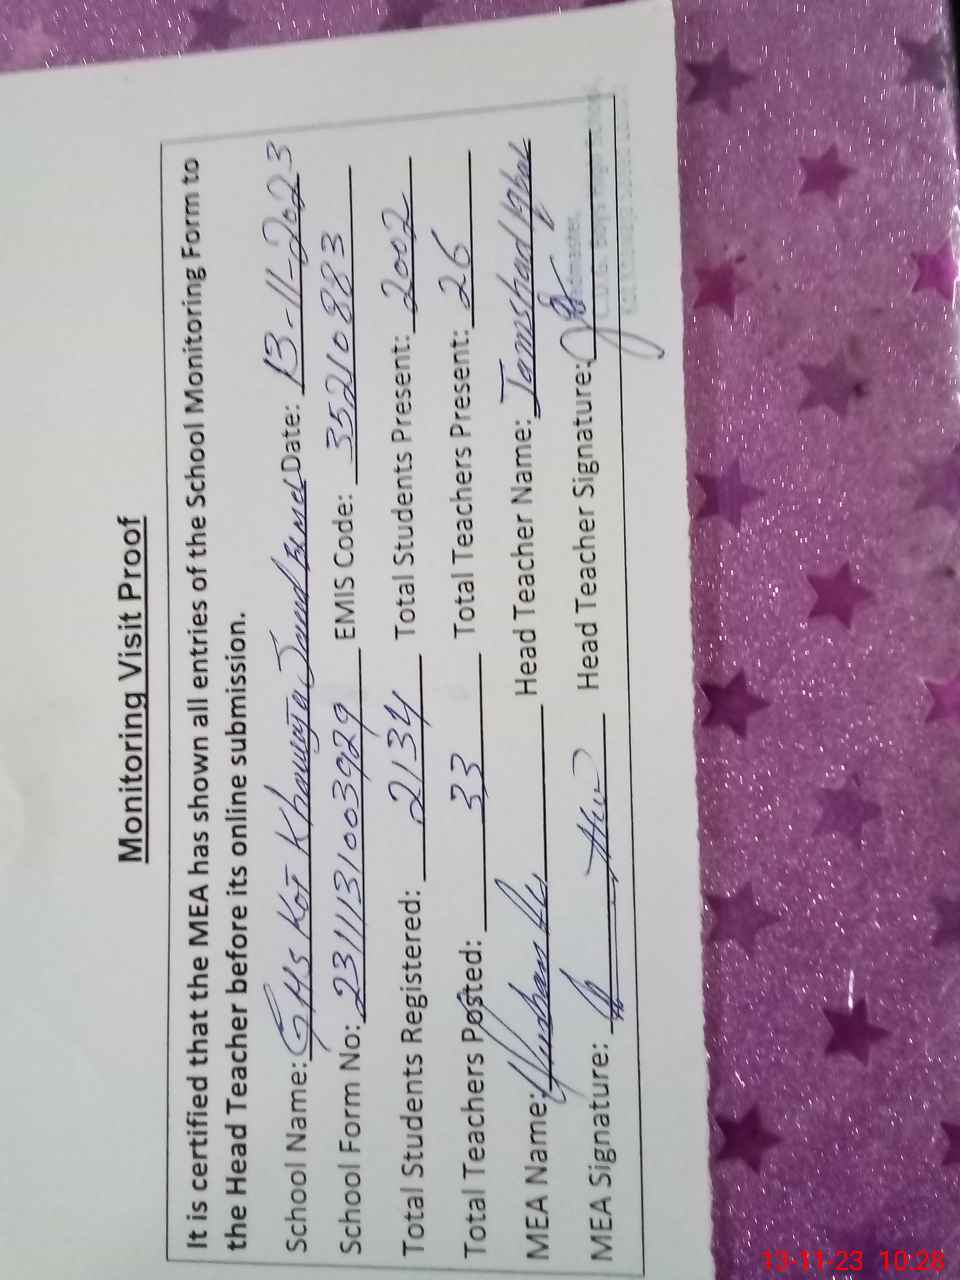 Monitoring Visit Proof
It is certified that the MEA has shown all entries of the School Monitoring Form to
the Head Teacher before its online submission.
School Name: GHS Kot Khawaja Saeed Date: 13-11-2023
School Form No: 2311131003929 EMIS Code: 35210883
Total Students Registered: 2134 Total Students Present: 2002
Total Teachers Posted: 33 Total Teachers Present: 26
MEA Name: Head Teacher Name: Jamshad Iqbal
MEA Signature: Head Teacher Signature:
13-11-23 10:28